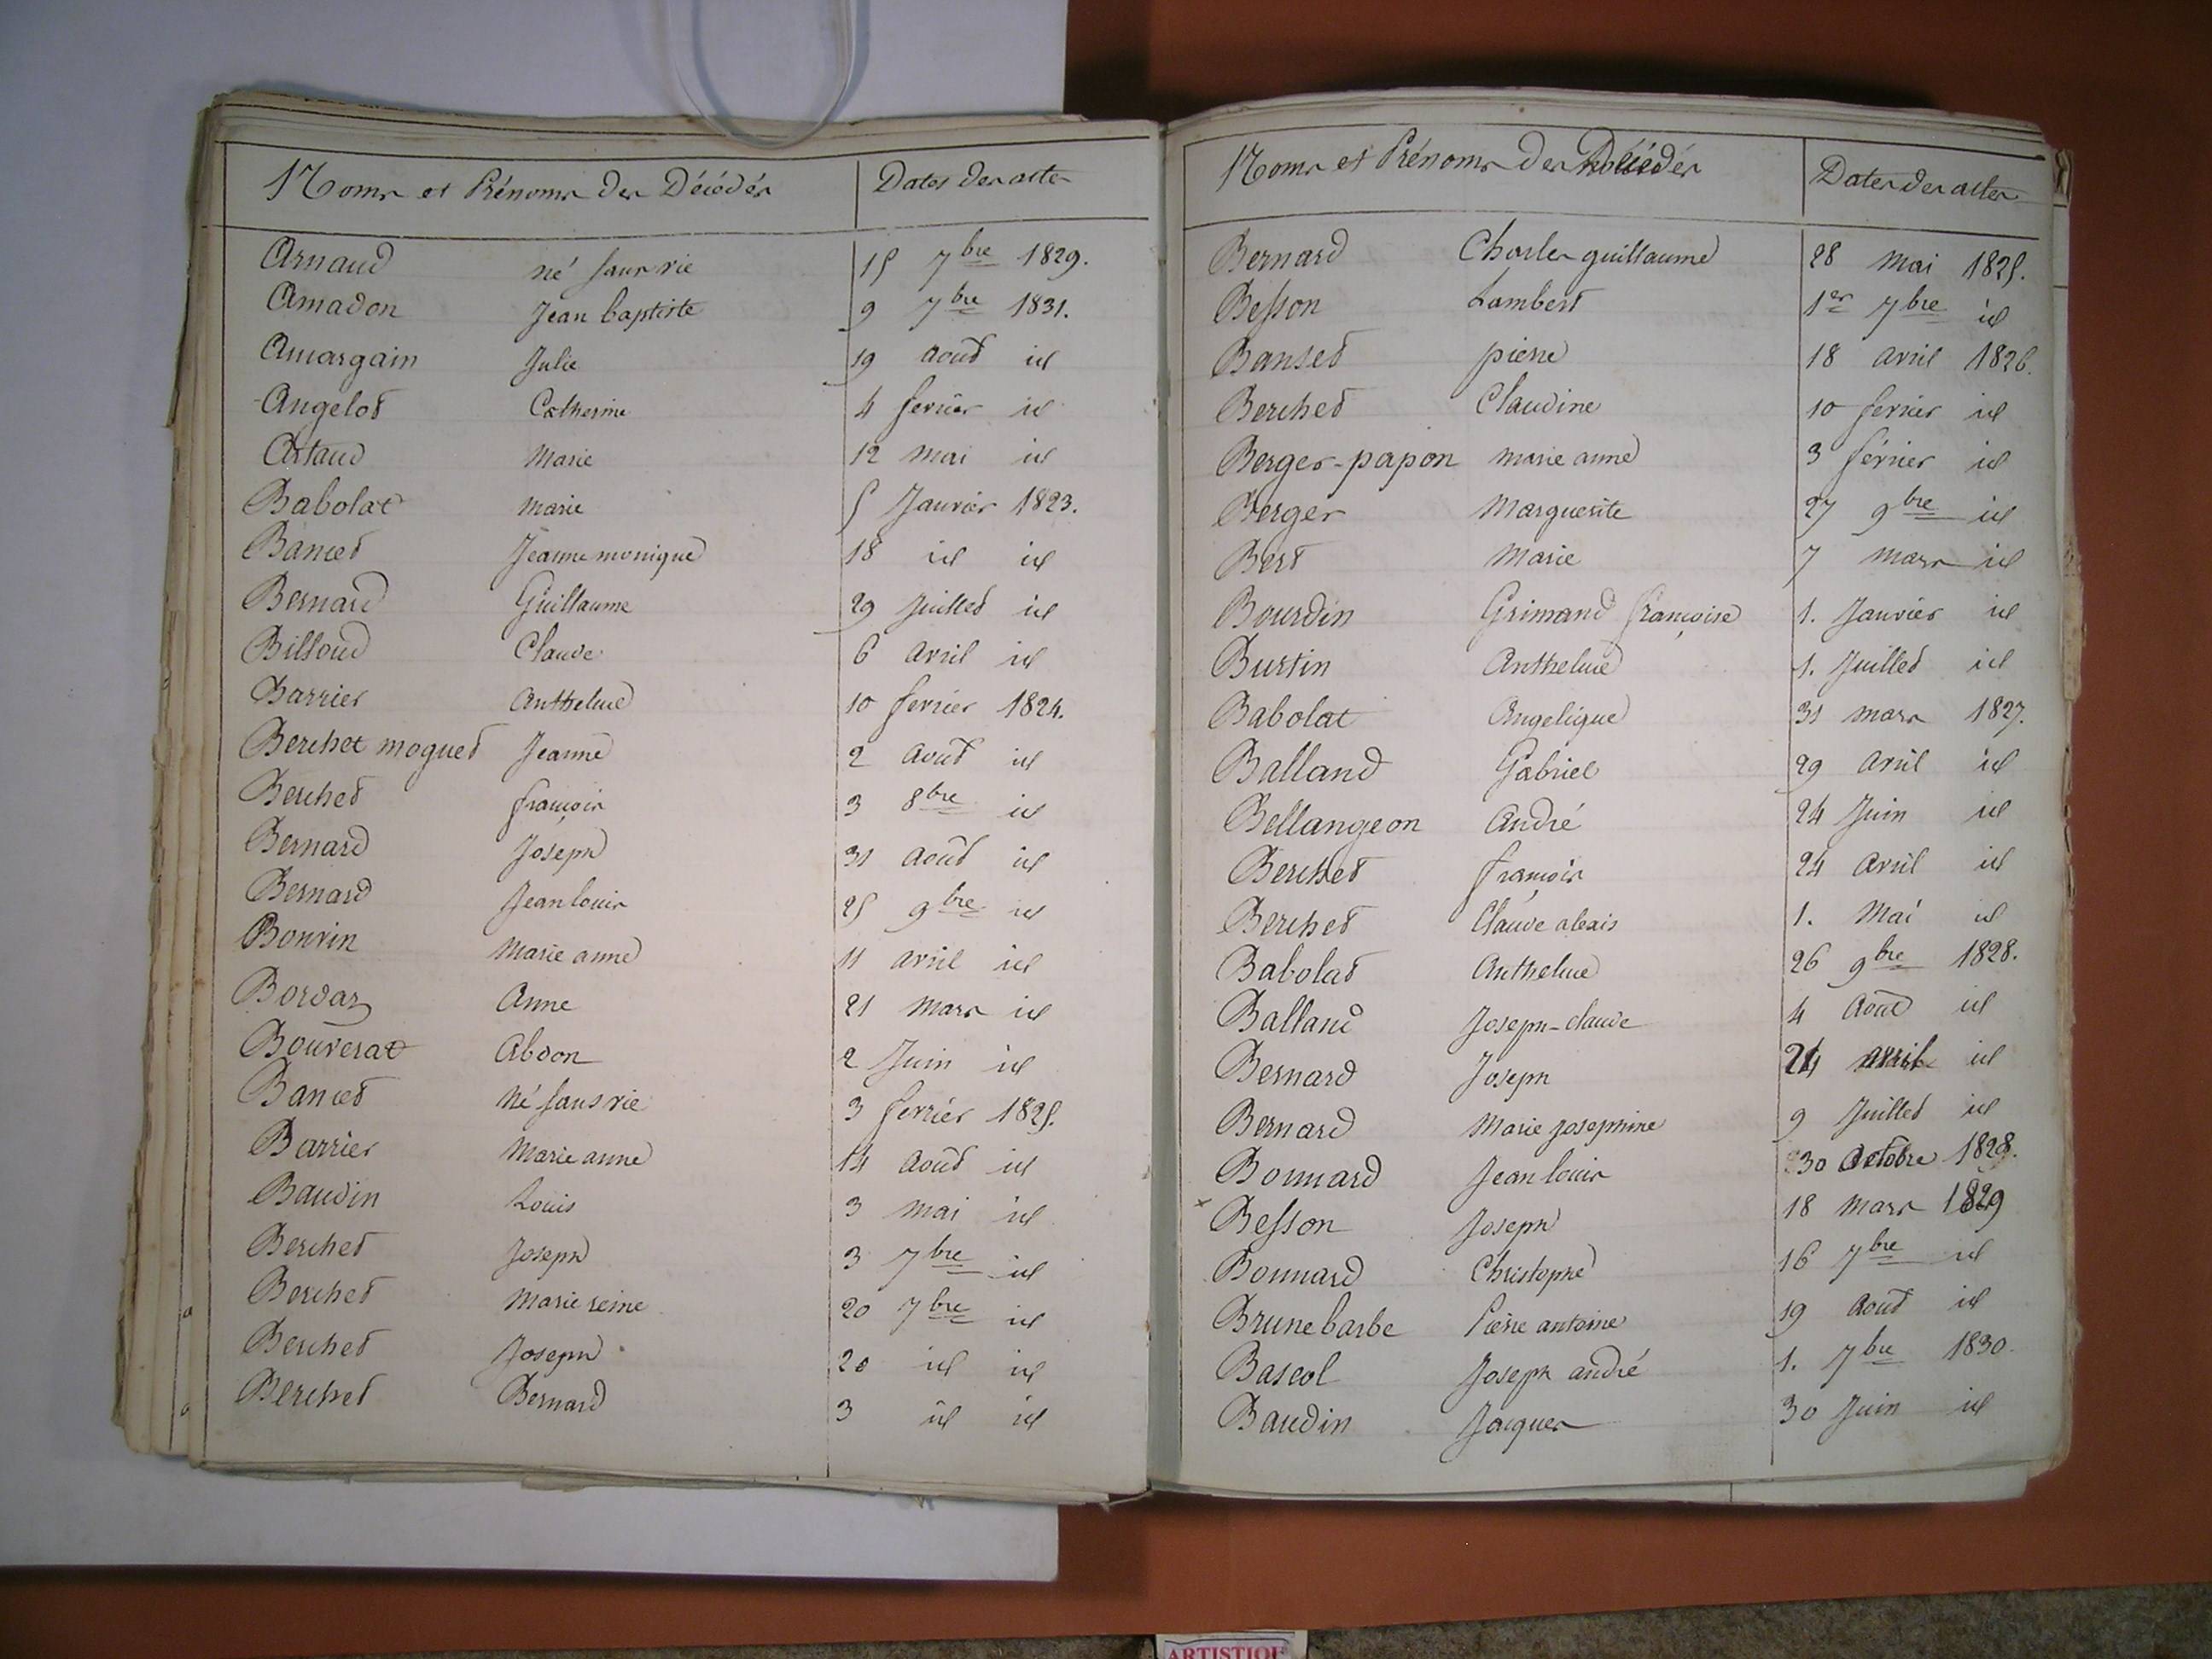 Noms et Prénoms des Décédés Dates des actes
Arnaud né sans vie 15 7bre 1829.
Amadon Jean baptiste 9 7bre 1831.
Amargain Julie 19 aout id
Angelot Catherine 4 fevrier id
Artaud Marie 12 mai id
Babolat marie 5 Janvier 1823.
Bancet Jeanne monique 18 id id
Bernard Guillaume 29 Juillet id
Billoud Claude 6 avril id
Barrier Anthelme 10 fevrier 1824.
Berchet moguet Jeanne 2 aout id
Berchet françois 3 8bre id
Bernard Joseph 31 aout id
Bernard Jean louis 25 9bre id
Bonvin Marie anne 11 avril id
Bordaz Anne 21 mars id
Bouverat Abdon 2 Juin id
Bancet né sans vie 3 fevrier 1825.
Barrier Marie anne 14 aout id
Baudin Louis 3 mai id
Berchet Joseph 3 7bre id
Berchet Marie reine 20 7bre id
Berchet Joseph 20 id id
Berchet Bernard 3 id id
Noms et Prénoms des Décédés Dates des actes
Bernard Charles guillaume 28 mai 1825.
Besson Lambert 1er 7bre id
Banset pierre 18 avril 1826.
Berchet Claudine 10 fevrier id
Berger-papon marie anne 3 février id
Berger Marguerite 27 9bre id
Bert Marie 7 mars id
Bourdin Grimand françoise 1. Janvier id
Burtin Anthelme 1. Juillet id
Babolat Angelique 31 mars 1827.
Balland Gabriel 29 avril id
Bellangeon André 24 Juin id
Berchet françois 24 avril id
Berchet Claude alexis 1. Mai id
Babolat Anthelme 26 9bre 1828.
Balland Joseph-claude 4 Aout id
Bernard Joseph 24 avril id
Bernard Marie Josephine 9 Juillet id
Bonnard Jean louis 30 Octobre 1828.
x Besson Joseph 18 mars 1829
Bonnard Christophe 16 7bre id
Brunebarbe Pierre antoine 19 Aout id
Bascol Joseph andré 1. 7bre 1830.
Baudin Jacques 30 Juin id
ARTISTIQUE